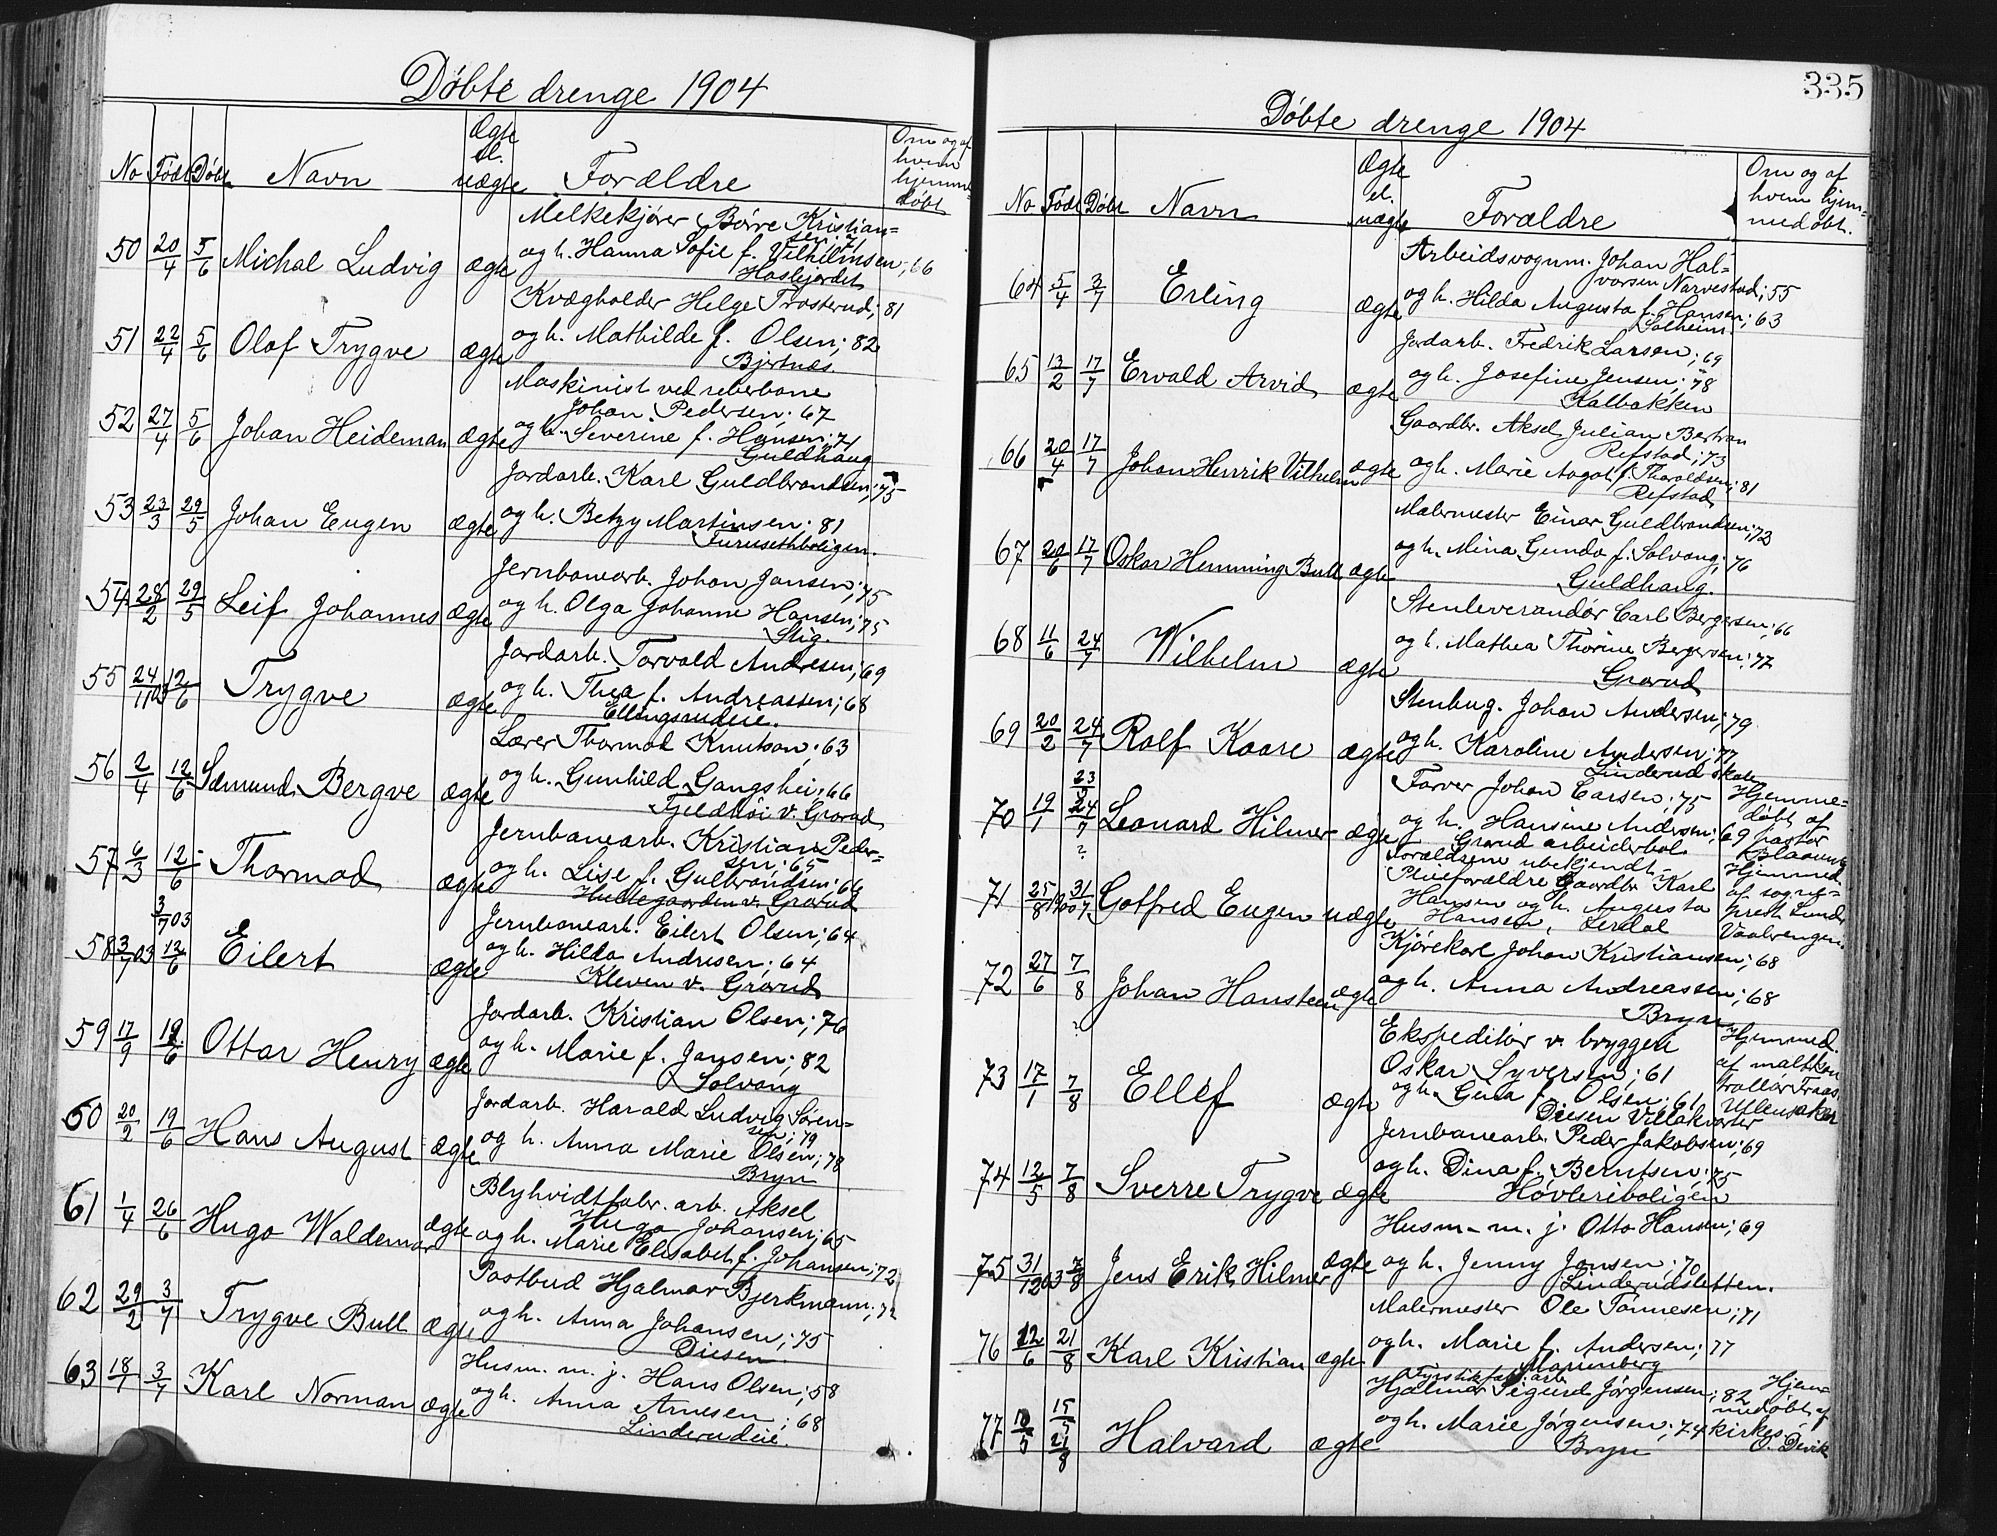 Døbte drenge 1904
No Født Døbt Navn Ægte el. uægte Forældre Om og af hvem hjemmedøbt
Melkekjører Børre Kristian=
sen; 71
50 20/4 5/6 Michal Ludvig ægte og h. Hanna Sofie f. Vilhelmsen; 66
Haslejordet
Kvægholder Helge Trosterud; 81
51 22/4 5/6 Olaf Trygve ægte og h. Mathilde f. Olsen; 82
Bjertnæs
Maskinist ved reberbane
Johan Pedersen; 67
52 27/4 5/6 Johan Heideman ægte og h. Severine f. Hansen; 71
Guldhaug
Jordarb. Karl Guldbrandsen; 75
53 23/3 29/5 Johan Eugen ægte og h. Betzy Martinsen; 81
Furusethboligen.
Jernbanearb. Johan Jansen; 75
54 28/2 29/5 Leif Johannes ægte og h. Olga Johanne Hansen; 75
Stig.
Jordarb. Torvald Andresen; 69
55 24/11 03 12/6 Trygve ægte og h. Thea f. Andreassen; 68
Ellingsrudeie.
Lærer Thormod Knutson; 63
56 2/4 12/6 Sæmund Bergve ægte og h. Gunhild Gangshei; 66
Fjeldhøi v. Grorud
Jernbanearb. Kristian Peder=
sen; 65
57 6/3 12/6 Thormod ægte og h. Lise f. Gulbrandsen; 64
v. Grorud
3/7 03
Jernbanearb. Eilert Olsen; 64
58 3/7 03 12/6 Eilert ægte og h. Hilda Andresen; 64
Kleven v. Grorud
Jordarb. Kristian Olsen; 76
59 17/9 12/6 Ottar Henry ægte og h. Marie f. Jansen; 82
Solvang
Jordarb. Harald Ludvig Søren=
sen; 79
60 20/2 19/6 Hans August ægte og h. Anna Marie Olsen; 78
Bryn
Blyhvidtfabr. arb. Aksel
Hugo Johansen; 65
61 1/4 26/6 Hugo Waldemar ægte og h. Marie Elisabet f. Johansen; 72
Postbud Hjalmar Bjerkmann; 72
62 29/2 3/7 Trygve Bull ægte og h. Anna Johansen; 75
Diesen
Husm. m. j. Hans Olsen; 58
63 18/1 3/7 Karl Norman ægte og h. Anna Arnesen; 68
Linderudeie.
335
Døbte drenge 1904
No Født Døbt Navn Ægte el. uægte Forældre Om og af hvem hjem=medøbt.
Arbeidsvognm. Johan Hal=
vorsen Narvestad; 55
64 5/4 3/7 Erling ægte og h. Hilda Augusta f. Hansen; 63
Solheim
Jordarb. Fredrik Larsen; 69
65 13/2 17/7 Ervald Arvid ægte og h. Josefine Jensen; 78
Kalbakken
Gaardbr. Aksel Julian Bertran
Refstad; 73
66 20/4 17/7 Johan Henrik Vilhelm ægte og h. Marie Aagot f. Tharaldsen; 81
Refstad
Malermester Einar Guldbrandsen; 73
67 20/6 17/7 Oskar Hemming Bull ægte og h. Mina Gunda f. Solvang; 76
Guldhaug.
Stenleverandør Carl Bergersen; 66
68 11/6 24/7 Wilhelm ægte og h. Mathea Thorine Bergersen; 77
Grorud
Stenhug. Johan Andersen; 79
69 20/2 24/7 Rolf Kaare ægte og h. Karoline Andersen; 77
Linderud skole
Farver Johan Carsen; 75 Hjemme=
døbt af
70 19/1 24/7 Leonard Hilmer ægte og h. Hansine Andersen; 69 pastor
Grorud arbeiderbol.
Forældrene ubekjendt. Hjemmed.
Pleieforældre Gaardbr. Karl af sogne=
71 25/8 1900 31/7 Gotfred Eugen uægte Hansen og h. Augusta prest Lunde
Hansen, Lerdal Vaalerengen
Kjørekarl Johan Kristiansen; 68
72 27/6 7/8 Johan Hansteen ægte og h. Anna Andreassen; 68
Bryn
Ekspeditør v. bryggeri Hjemmed.
Oskar Syversen; 61 af maltkon
73 17/1 7/8 Ellef ægte og h. Gusta f. Olsen; 61 trollør Fraas
Diesen Villakvarter Ullensaker
Jernbanearb. Peder Jakobsen; 69
74 12/5 7/8 Sverre Trygve ægte og h. Dina f. Berntsen; 75
Høvleriboligen
Husm. m. j. Otto Hansen; 69
75 31/12 03 7/8 Jens Erik Hilmer ægte og h. Jenny Jonsen; 70
Linderudsletten.
Malermester Ole Tønnesen; 71
76 12/6 21/8 Karl Kristian ægte og h. Marie f. Andersen; 77
Marienberg
Fyrstikfab. arb.
Hjalmar Sigurd Jørgensen; 82 Hjem=
medøbt af
77 10/5 15/5 21/8 Halvard ægte og h. Marie Jørgensen; 74 kirkes.
Bryn O. Devik